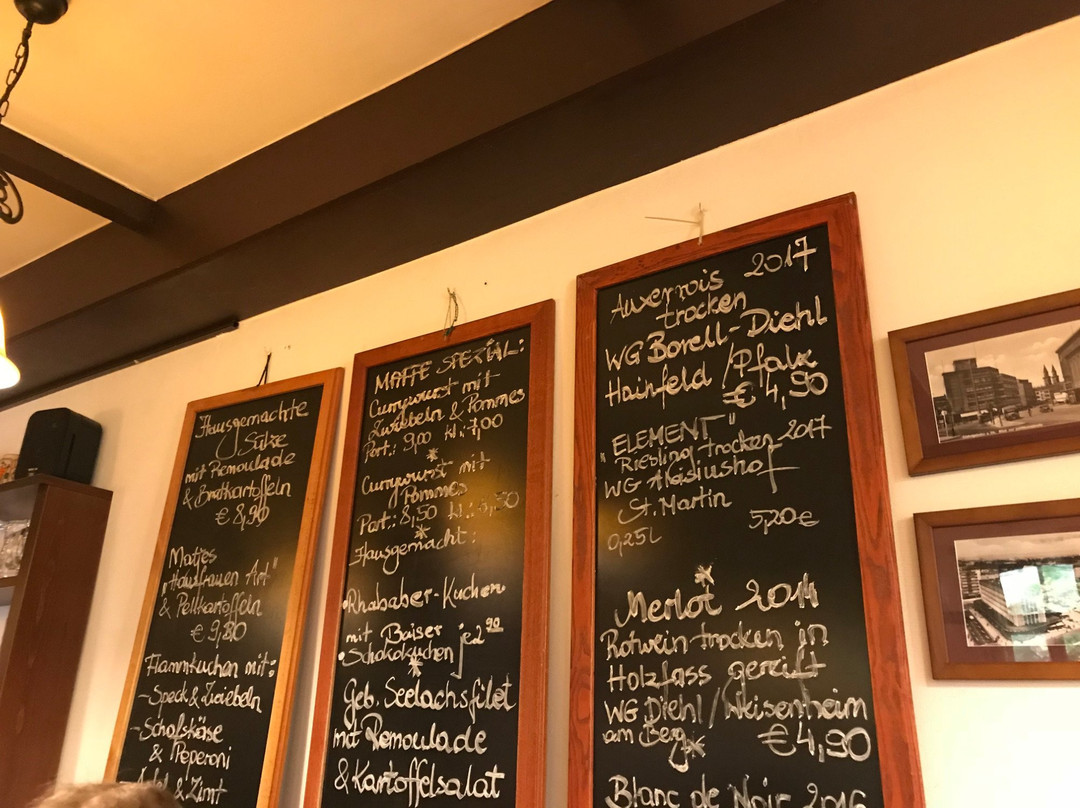 Hausgemachte
Sülze
mit Remoulade
& Bratkartoffeln
€ 8,90
Matjes
"Hausfrauen Art"
& Pellkartoffeln
€ 9,80
Flammkuchen mit:
- Speck & Zwiebeln
- Schafskäse
& Peperoni
- Apfel & Zimt
MAFFE SPEZIAL:
Currywurst mit
Zwiebeln & Pommes
Port.: 9,00 kl.: 7,00
*
Currywurst mit
Pommes
Port.: 8,50 kl.: 6,50
*
Hausgemacht:
• Rhababer-Kuchen
mit Baiser je 2,90
• Schokokuchen
*
Geb. Seelachsfilet
mit Remoulade
& Kartoffelsalat
Auxerrois 2017
trocken
WG Borell-Diehl
Hainfeld /Pfalz
€ 4,90
"ELEMENT"
Riesling trocken 2017
WG Aloisiushof
St. Martin
0,25L 5,20€
*
Merlot 2014
Rotwein trocken in
Holzfass gereift
WG Diehl / Weisenheim
am Berg € 4,90
*
Blanc de Noir 2016